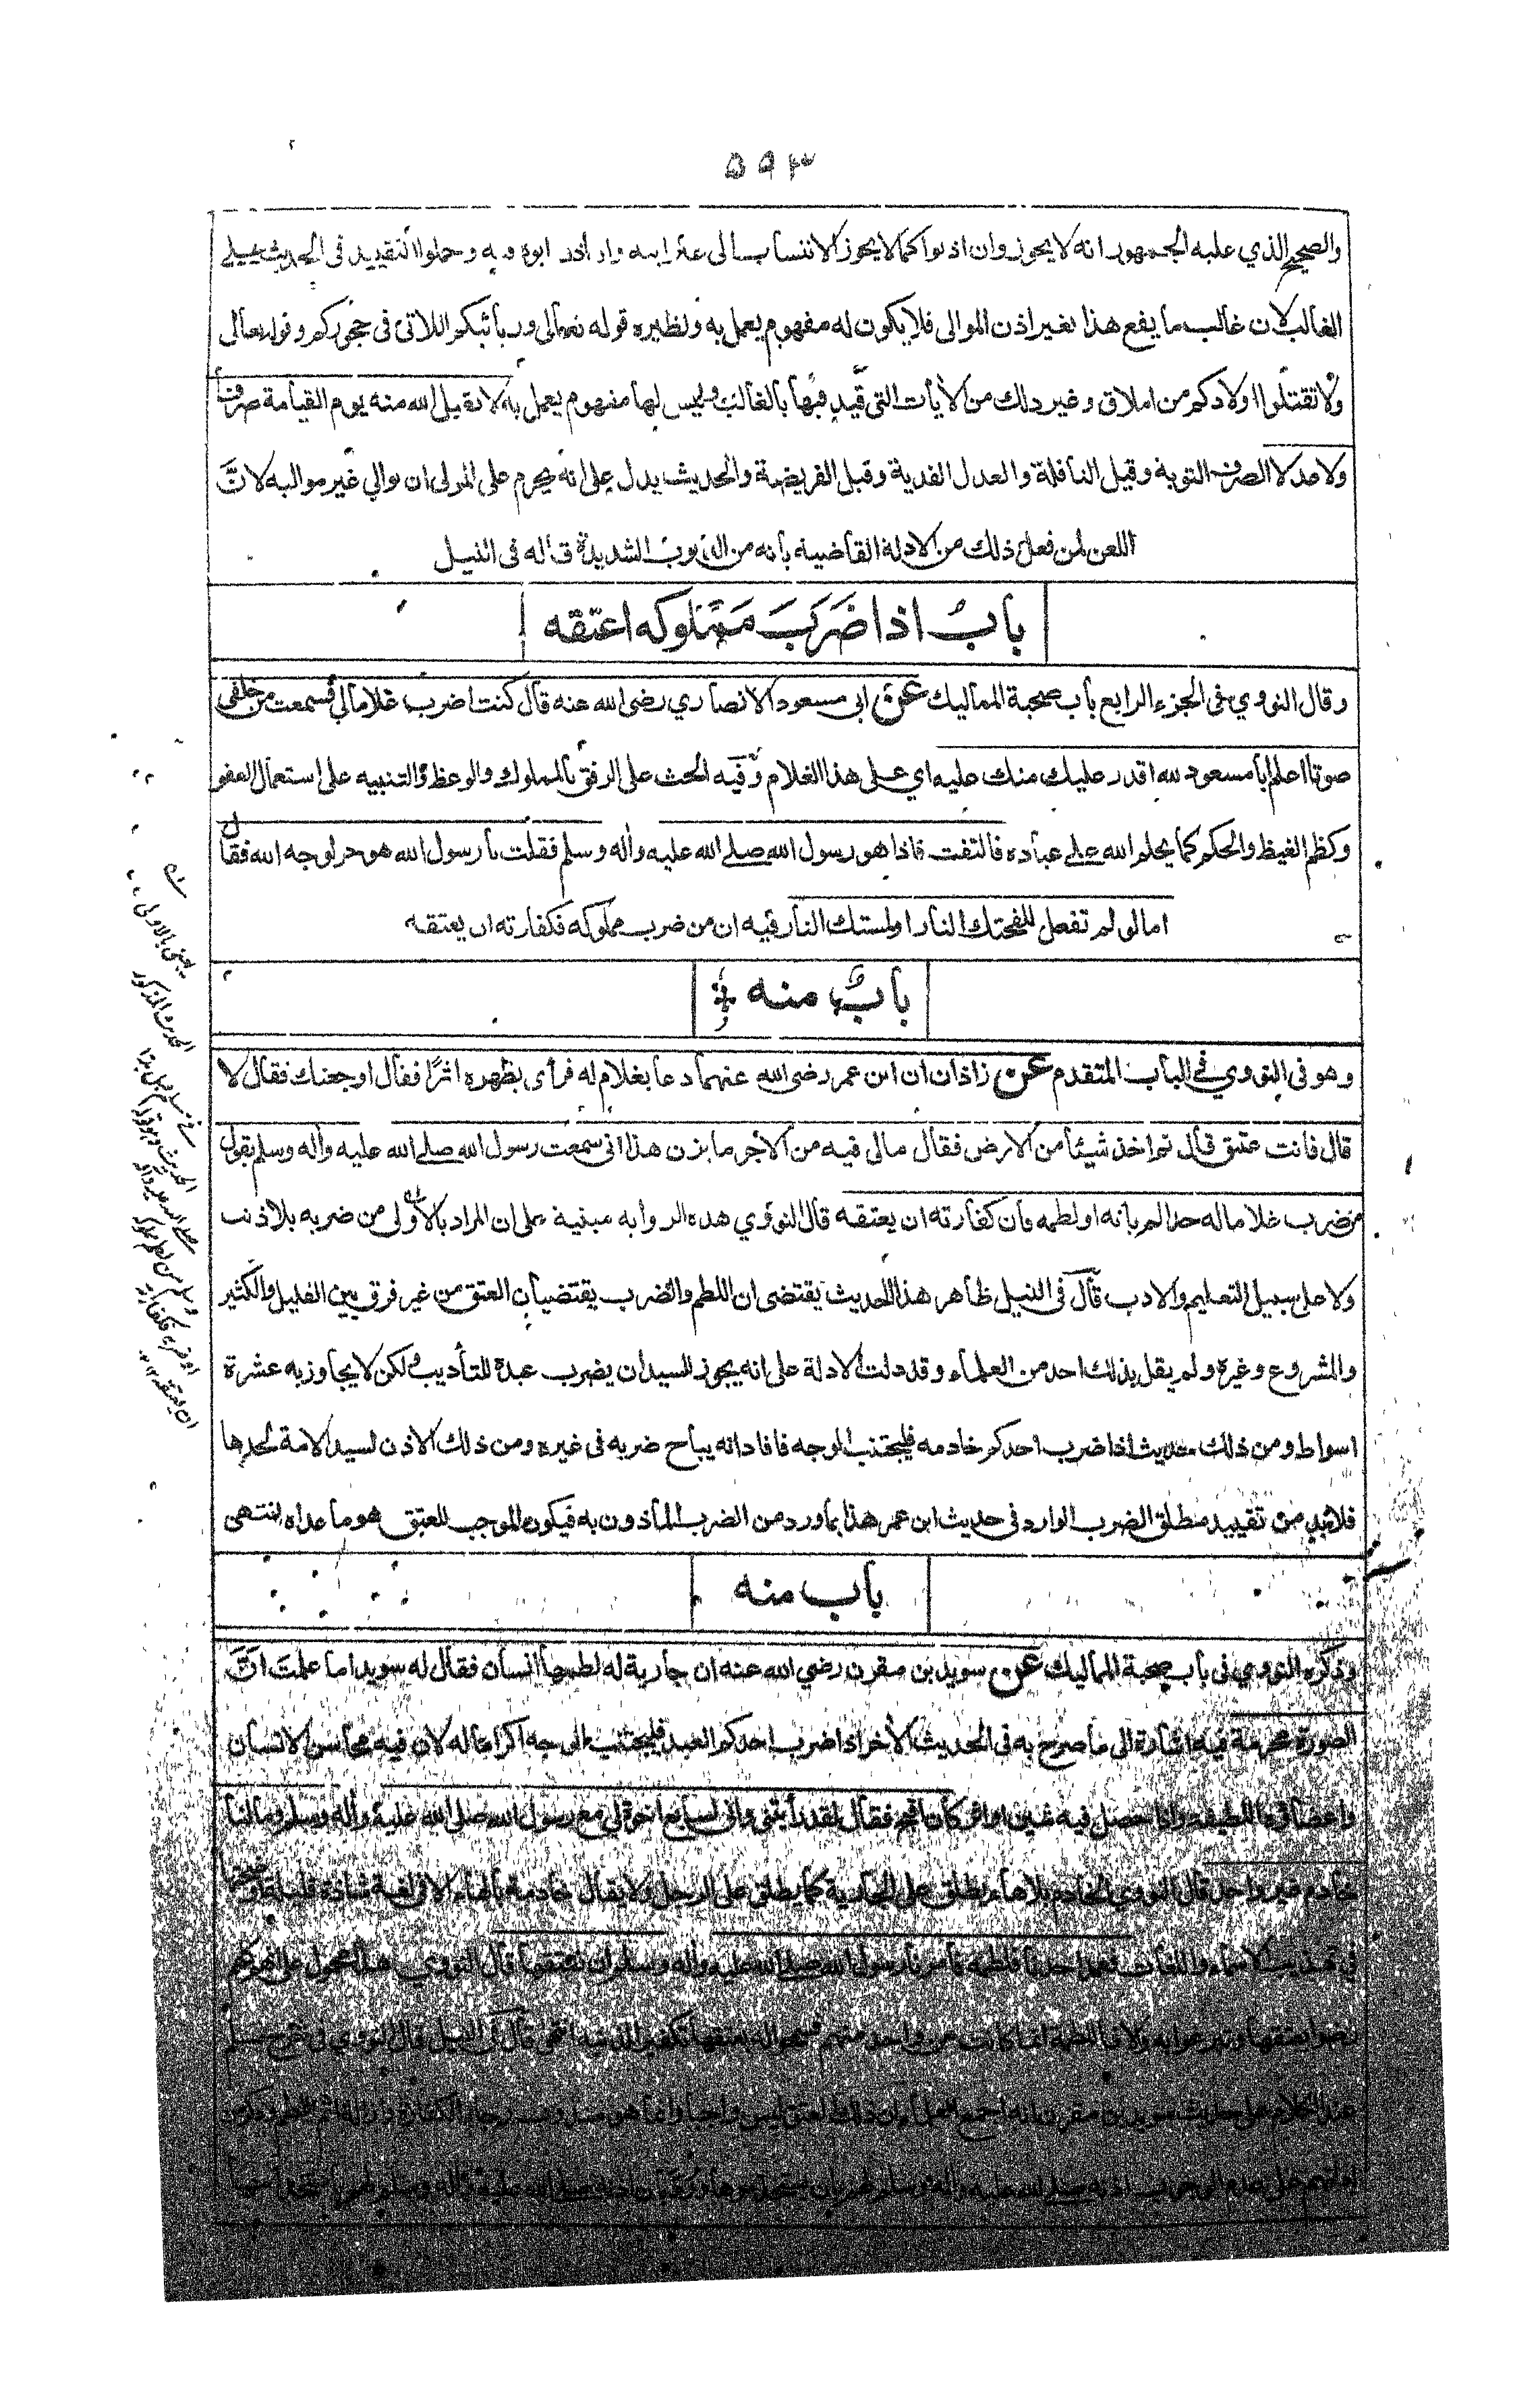 ۵۹۳
والصحيح الذي عليه الجمهور انه لا يجوز وان اذنوا كما لا يجوز الانتساب الى غير ابيه وان اذن ابوه فيه وحملوا التقييد في الحديث على
الغالب لان غالب ما يقع هذا بغير اذن الموالى فلا يكون له مفهوم يعمل به ونظيره قوله تعالى وربائبكم اللاتى فى حجوركم وقوله تعالى
ولا تقتلوا اولادكم من املاق وغير ذلك من الأيات التى قيد فيها بالغالب وليس لها مفهوم يعمل به لا يقبل الله منه يوم القيامة صرفا
ولا عدلا الصرف التوبة وقيل النافلة والعدل الفدية وقيل الفريضة والحديث يدل على انه يحرم على المولى ان يوالي غير مواليه لانَّ
اللعن لمن فعل ذلك من الادلة القاضية بأنه من الذنوب الشديدة قاله فى النيل
باب اذا ضَرَبَ مَمْلوكه اعتقه
وقال النووي فى الجزء الرابع باب صحبة المماليك عن ابى مسعود الانصاري رضى الله عنه قال كنت اضرب غلاما لي فسمعت من خلفى
صوتا اعلم ابا مسعود لله اقدر عليك منك عليه اي على هذا الغلام وفيه الحث على الرفق بالمملوك والوعظ والتنبيه على استعمال العفو
وكظم الغيظ والحكم كما يحلم الله على عباده فالتفت فاذا هو رسول الله صلى الله عليه وأله وسلم فقلت يا رسول الله هو حر لوجه الله فقال
اما لو لم تفعل للفحتك النار او لمستك النار فيه ان من ضرب مملوكه فكفارته ان يعتقه
باب منه
وهو فى النووي في الباب المتقدم عن زاذان ان ابن عمر رضى الله عنهما دعا بغلام له فرأى بظهره اثرًا فقال اوجعتك فقال لا
قال فانت عتيق قال ثم اخذ شيئا من الارض فقال مالى فيه من الأجر ما يزن هذا انى سمعت رسول الله صلى الله عليه وأله وسلم يقول
من ضرب غلاما له حدا لم يأته او لطمه فان كفارته ان يعتقه قال النووي هذه الرواية مبنية على ان المراد بالاولى من ضربه بلا ذنب
ولا على سبيل التعليم والادب قال فى النيل ظاهر هذا الحديث يقتضى ان اللطم والضرب يقتضيان العتق من غير فرق بين القليل والكثير
والمشروع وغيره ولم يقل بذلك احد من العلماء وقد دلت الادلة على انه يجوز للسيد ان يضرب عبده للتأديب ولكن لا يجاوز به عشرة
اسواط ومن ذلك حديث اذا ضرب احدكم خادمه فليجتنب الوجه فافاد انه يباح ضربه فى غيره ومن ذلك الاذن لسيد الامة لحدها
فلابد من تقييد مطلق الضرب الوارد فى حديث ابن عمر هذا بما ورد من الضرب المأذون به فيكون الموجب للعتق هو ما عداه انتهى
باب منه
وذكره النووي فى باب صحبة المماليك عن سويد بن مقرن رضي الله عنه ان جارية له لطمها انسان فقال له سويد اما علمت انَّ
الصورة محرمة فيه اشارة الى ما صرح به فى الحديث الأخر اذا ضرب احدكم العبد فليجتنب الوجه اكراما له لان فيه محاسن الانسان
واعضاؤه اللطيفة واذا حصل فيه شين او اثر كان اقبح فقال لقد رأيتنى وانى لسابع اخوة لى مع رسول الله صلى الله عليه وأله وسلم وما لنا
خادم غير واحد قال النووي الخادم بلا هاء يطلق على الجارية كما يطلق على الرجل ولا يقال خادمة بالهاء الا فى لغة شاذة قليلة اوضحتها
في تهذيب الاسماء واللغات فعمد احدنا فلطمه فأمرنا رسول الله صلى الله عليه وأله وسلم ان نعتقه قال النووي هذا محمول على انهم كلهم
رضوا بعتقها وتبرعوا به والا فاللطمة انما كانت من واحد منهم فسمحوا له بعتقها تكفيرا لذنبه انتهى قال فى النيل قال النووي فى شرح مسلم